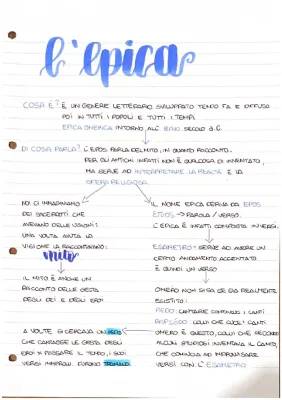 l'epica
COSA È? È UN GENERE LETTERARIO SVILUPPATO TEMPO FA E DIFFUSO
POI IN TUTTI I POPOLI E TUTTI I TEMPI.
EPICA OMERICA INTORNO ALL' SECOLO a.C.
DI COSA PARLA? L'EPOS PARLA DEL MITO, IN QUANTO RACCONTO.
PER GLI ANTICHI INFATTI NON È QUALCOSA DI INVENTATO,
MA SERVE AD INTERPRETARE LA REALTÀ E LA
SFERA RELIGIOSA.
NOI CI IMMAGINIAMO
DEI SACERDOTI CHE
AVEVANO DELLE VISIONI:
UNA VOLTA AVUTA LA
VISIONE LA RACCONTAVANO:
mito
IL MITO È ANCHE UN
RACCONTO DELLE GESTA
DEGLI DEI E DEGLI EROI
A VOLTE SI CERCAVA UN AEDO
CHE CANTASSE LE GESTA DEGLI
EROI X PASSARE IL TEMPO, I SUOI
VERSI IMMORTALI FURONO
IL NOME EPICA DERIVA DA EPOS
→ PAROLA / VERSO.
L'EPICA È INFATTI COMPOSTA IN VERSI.
ESAMETRO: SERVE AD AVERE UN
CERTO ANDAMENTO ACCENTATO
E QUINDI UN VERSO
OMERO NON SI SA SE SIA REALMENTE
ESISTITO:
AEDO: CANTARE COMPONE I CANTI
RAPSODO: COLUI CHE CUCE I CANTI
OMERO È QUESTO, COLUI CHE SECONDO
ALCUNI STUDIOSI INVENTAVA IL CANTO,
CHE COMINCIA AD IMPROVVISARE
VERSI CON L'ESAMETRO